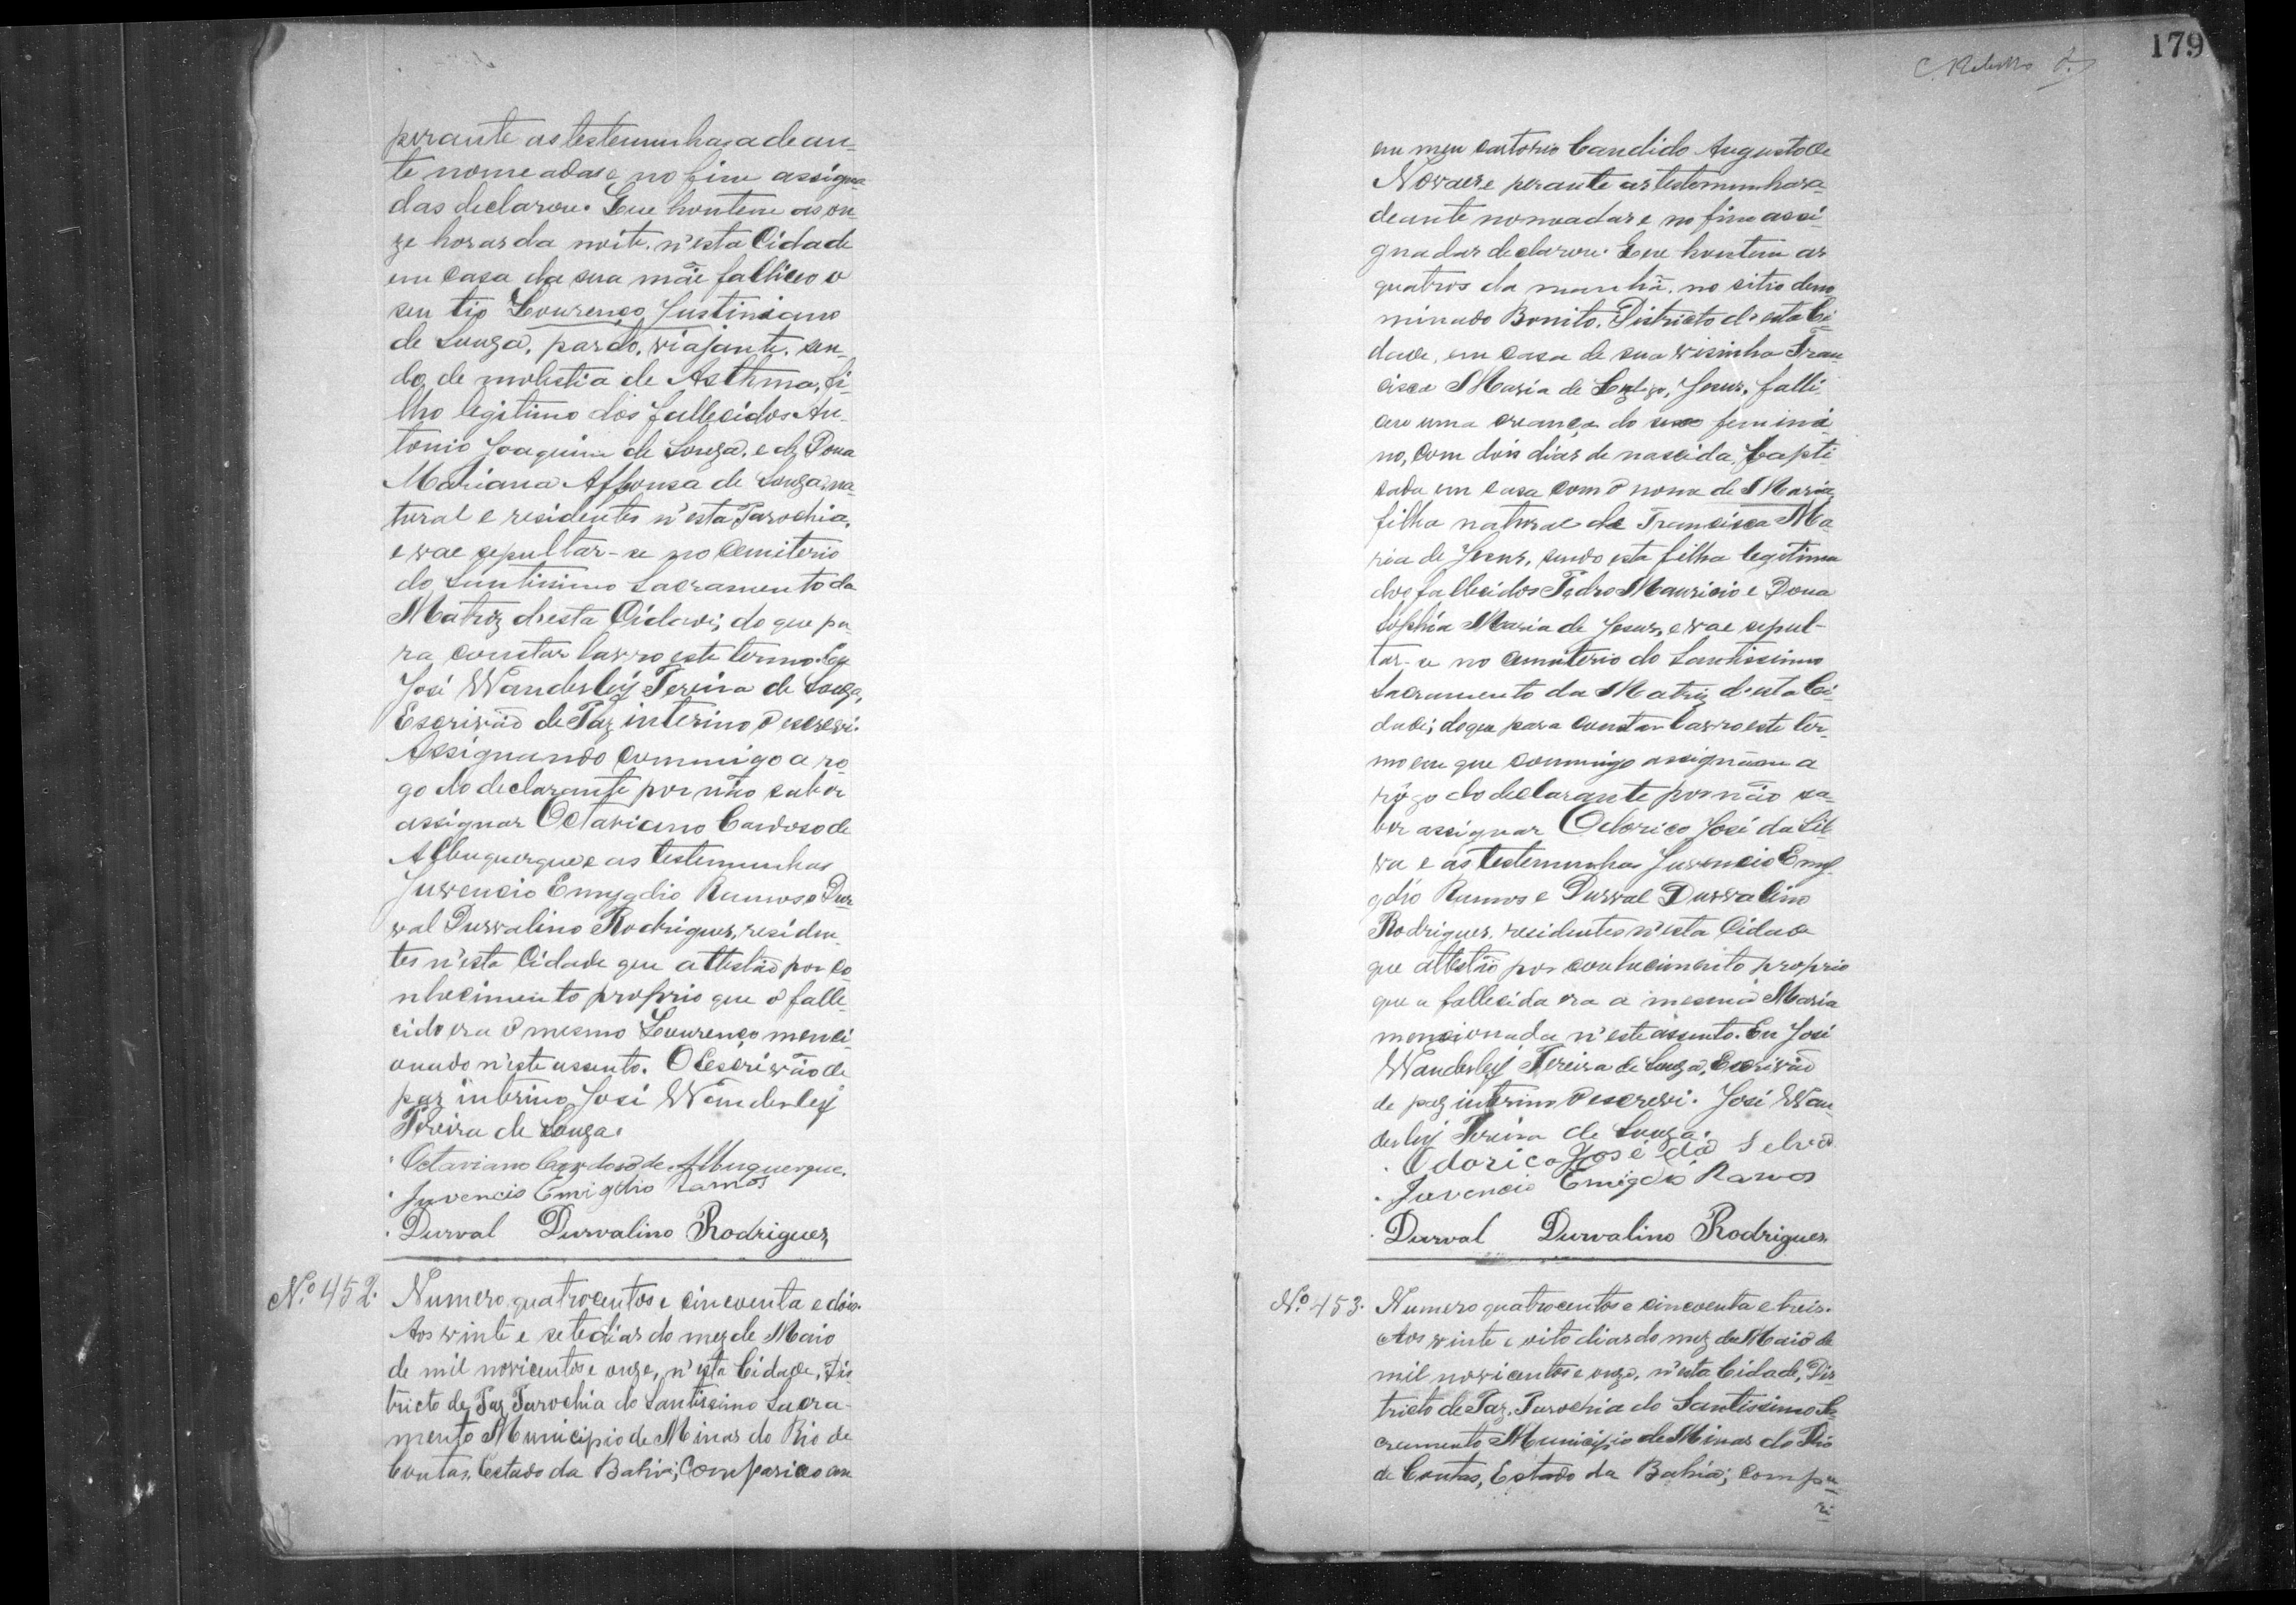 perante as testemunhas adean-
te nomeadas e no fim assigna-
das declarou. Que hontem as on-
ze horas da noite, n'esta Cidade
em casa da sua mãe falliceo o
seu tio Lourenço Justiniano
de Souza, pardo, viajante, sen-
do de molestia de Asthma, fi-
lho legitimo dos fallecidos An-
tonio Joaquim de Souza, e de Dona
Mariana Affonsa de Souza, na-
tural e residentes n'esta Parochia,
e vae sepultar-se no cemiterio
do Santissimo Sacramento da
Matriz d'esta Cidade; do que pa-
ra constar lavro este termo. Eu
José Wanderley Pereira de Souza,
Escrivão de Paz interino o escrevi.
Assignando commigo a ro-
go do declarante por não saber
assignar Octaviano Cardoso de
Albuquerque e as testemunhas
Juvencio Emygdio Ramos e Dur-
val Durvalino Rodrigues, residen-
tes n'esta Cidade que attestão por co-
nhecimento proprio que o falle-
cido era o mesmo Lourenço menci-
onado n'este assento. O Escrivão de
paz interino José Wanderley
Pereira de Souza.
Octaviano Cardoso de Albuquerque.
Juvencio Emigdio Ramos
Durval Durvalino Rodrigues,
Nº 452. Numero quatrocentos e cincoenta e dois.
Aos vinte e sete dias do mez de Maio
de mil novicentos e onze, n'esta Cidade, Dis-
tricto de Paz, Parochia do Santissimo Sacra-
mento Municipio de Minas do Rio de
Contas, Estado da Bahia; Compariceo em
179
em meu cartorio Candido Augusto de
Novaes e perante as testemunhas a-
deante nomeadas e no fim assi-
gnadas declarou. Que hontem as
quatros da manhã, no sitio deno-
minado Bonito, Districto d'esta Ci-
dade, em casa de sua visinha Fran-
cisca Maria de Jesus, falli-
ceu uma creança do sexo femini-
no, com dois dias de nascida, bapti-
sada em casa com o nome de Maria,
filha natural de Francisca Ma-
ria de Jesus, sendo esta filha legitima
dos fallecidos Pedro Mauricio e Dona
Sophia Maria de Jesus, e vae sepul-
tar-se no cemiterio do Santissimo
Sacramento da Matriz d'esta Ci-
dade; do que para constar lavro este ter-
mo em que commigo assignão a
rôgo do declarante por não sa-
ber assignar Odorico José da Sil-
va e as testemunhas Juvencio Emy-
gdio Ramos e Durval Durvalino
Rodrigues, residentes n'esta Cidade
que attestão por conhecimento proprio
que a fallecida era a mesma Maria
mencionada n'este assento. Eu José
Wanderley Pereira de Souza, Escrivão
de paz interino o escrevi. José Wan-
derley Pereira de Souza.
Odorico José da Selva
Juvencio Emigdio Ramos
Durval Durvalino Rodrigues.
Nº 453. Numero quatrocentos e cincoenta e treis.
Aos vinte e oito dias do mez de Maio de
mil novicentos e onze, n'esta Cidade, Dis-
tricto de Paz, Parochia do Santissimo Sa-
cramento Municipio de Minas do Rio
de Contas, Estado da Bahia; compa-
ri-